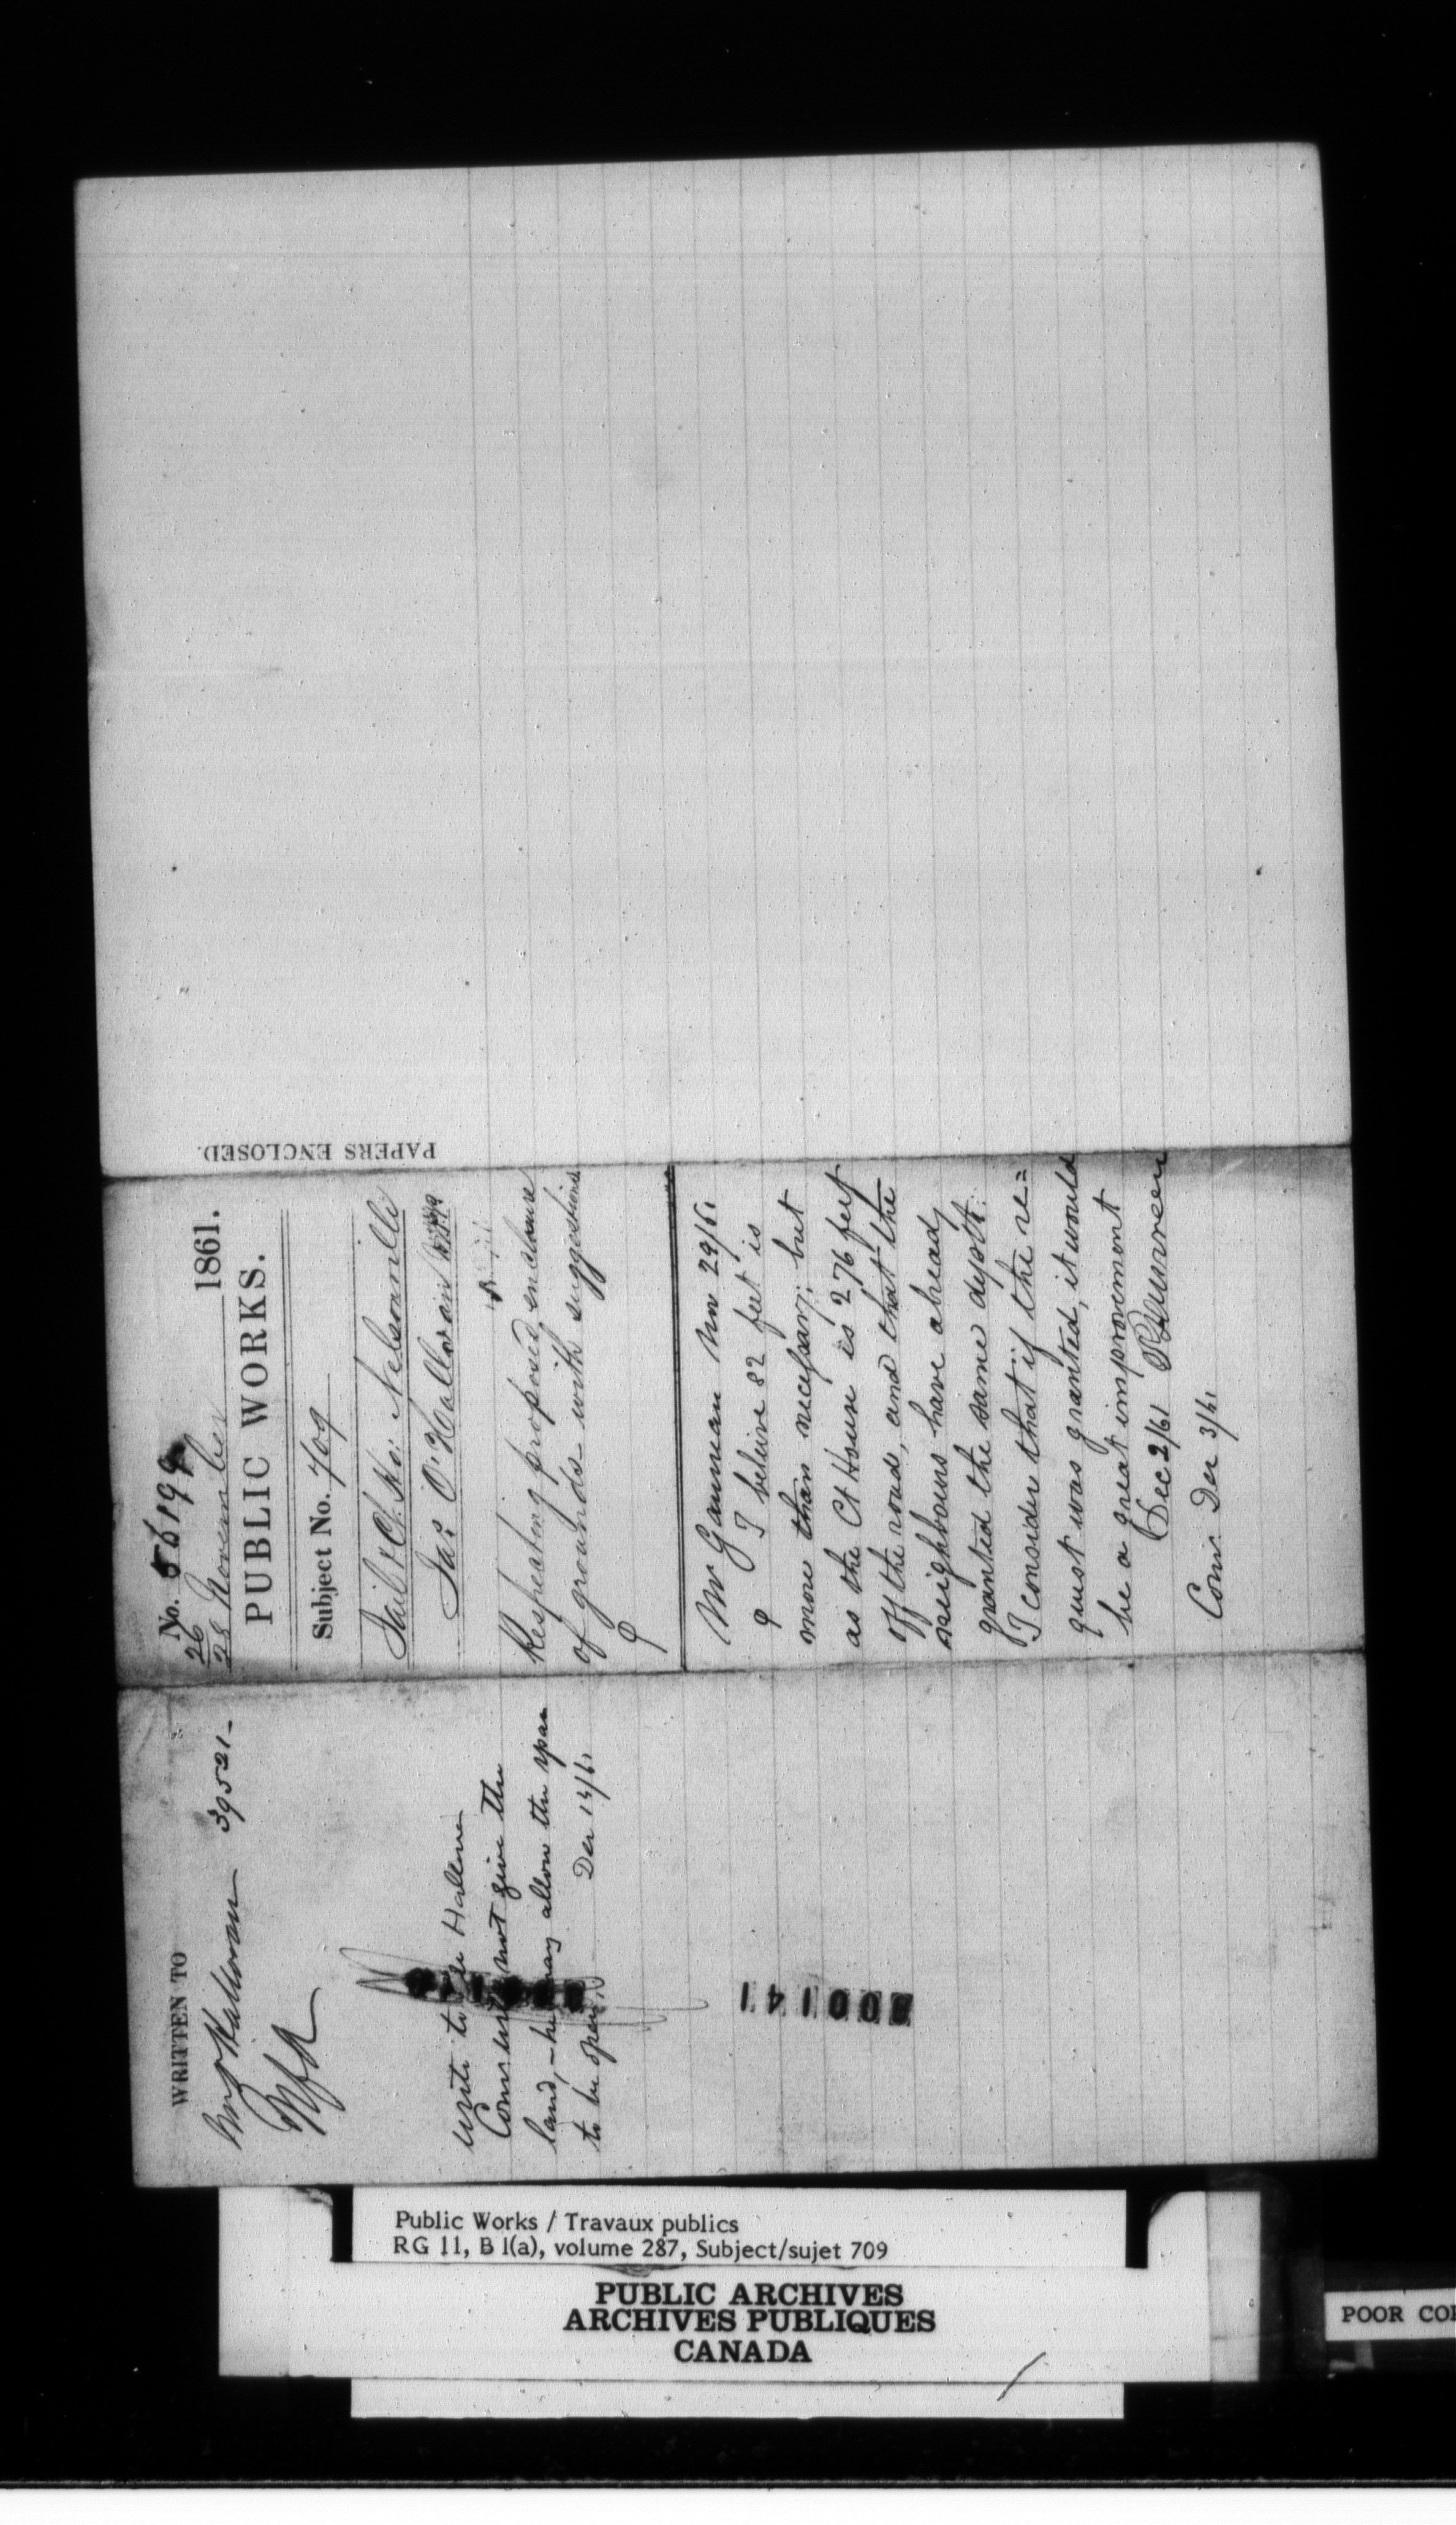 PAPERS ENCLOSED.
No. 55199
26
28 November 1861.
PUBLIC WORKS.
Subject No. 709
Jail & Ct. Ho: Nelsonville
Jas. O'Halloran
Respecting proposed enclosure
of grounds with suggestions
Mr Gauvreau Nov 29/61
I believe 82 feet is
more than necessary; but
as the Ct House is 276 feet
off the road, and that the
neighbours have already
granted the same depth:
I consider that if the re=
quest was granted, it would
be a great improvement
Dec 2/61
Comr Dec 3/61
WRITTEN TO
O'Halloran 39521-
write to
Comr will not give the
land, - he may allow the space
to be open. Dec 14/61
000141
Public Works / Travaux publics
RG 11, B 1(a), volume 287, Subject/sujet 709
PUBLIC ARCHIVES
ARCHIVES PUBLIQUES
CANADA
POOR